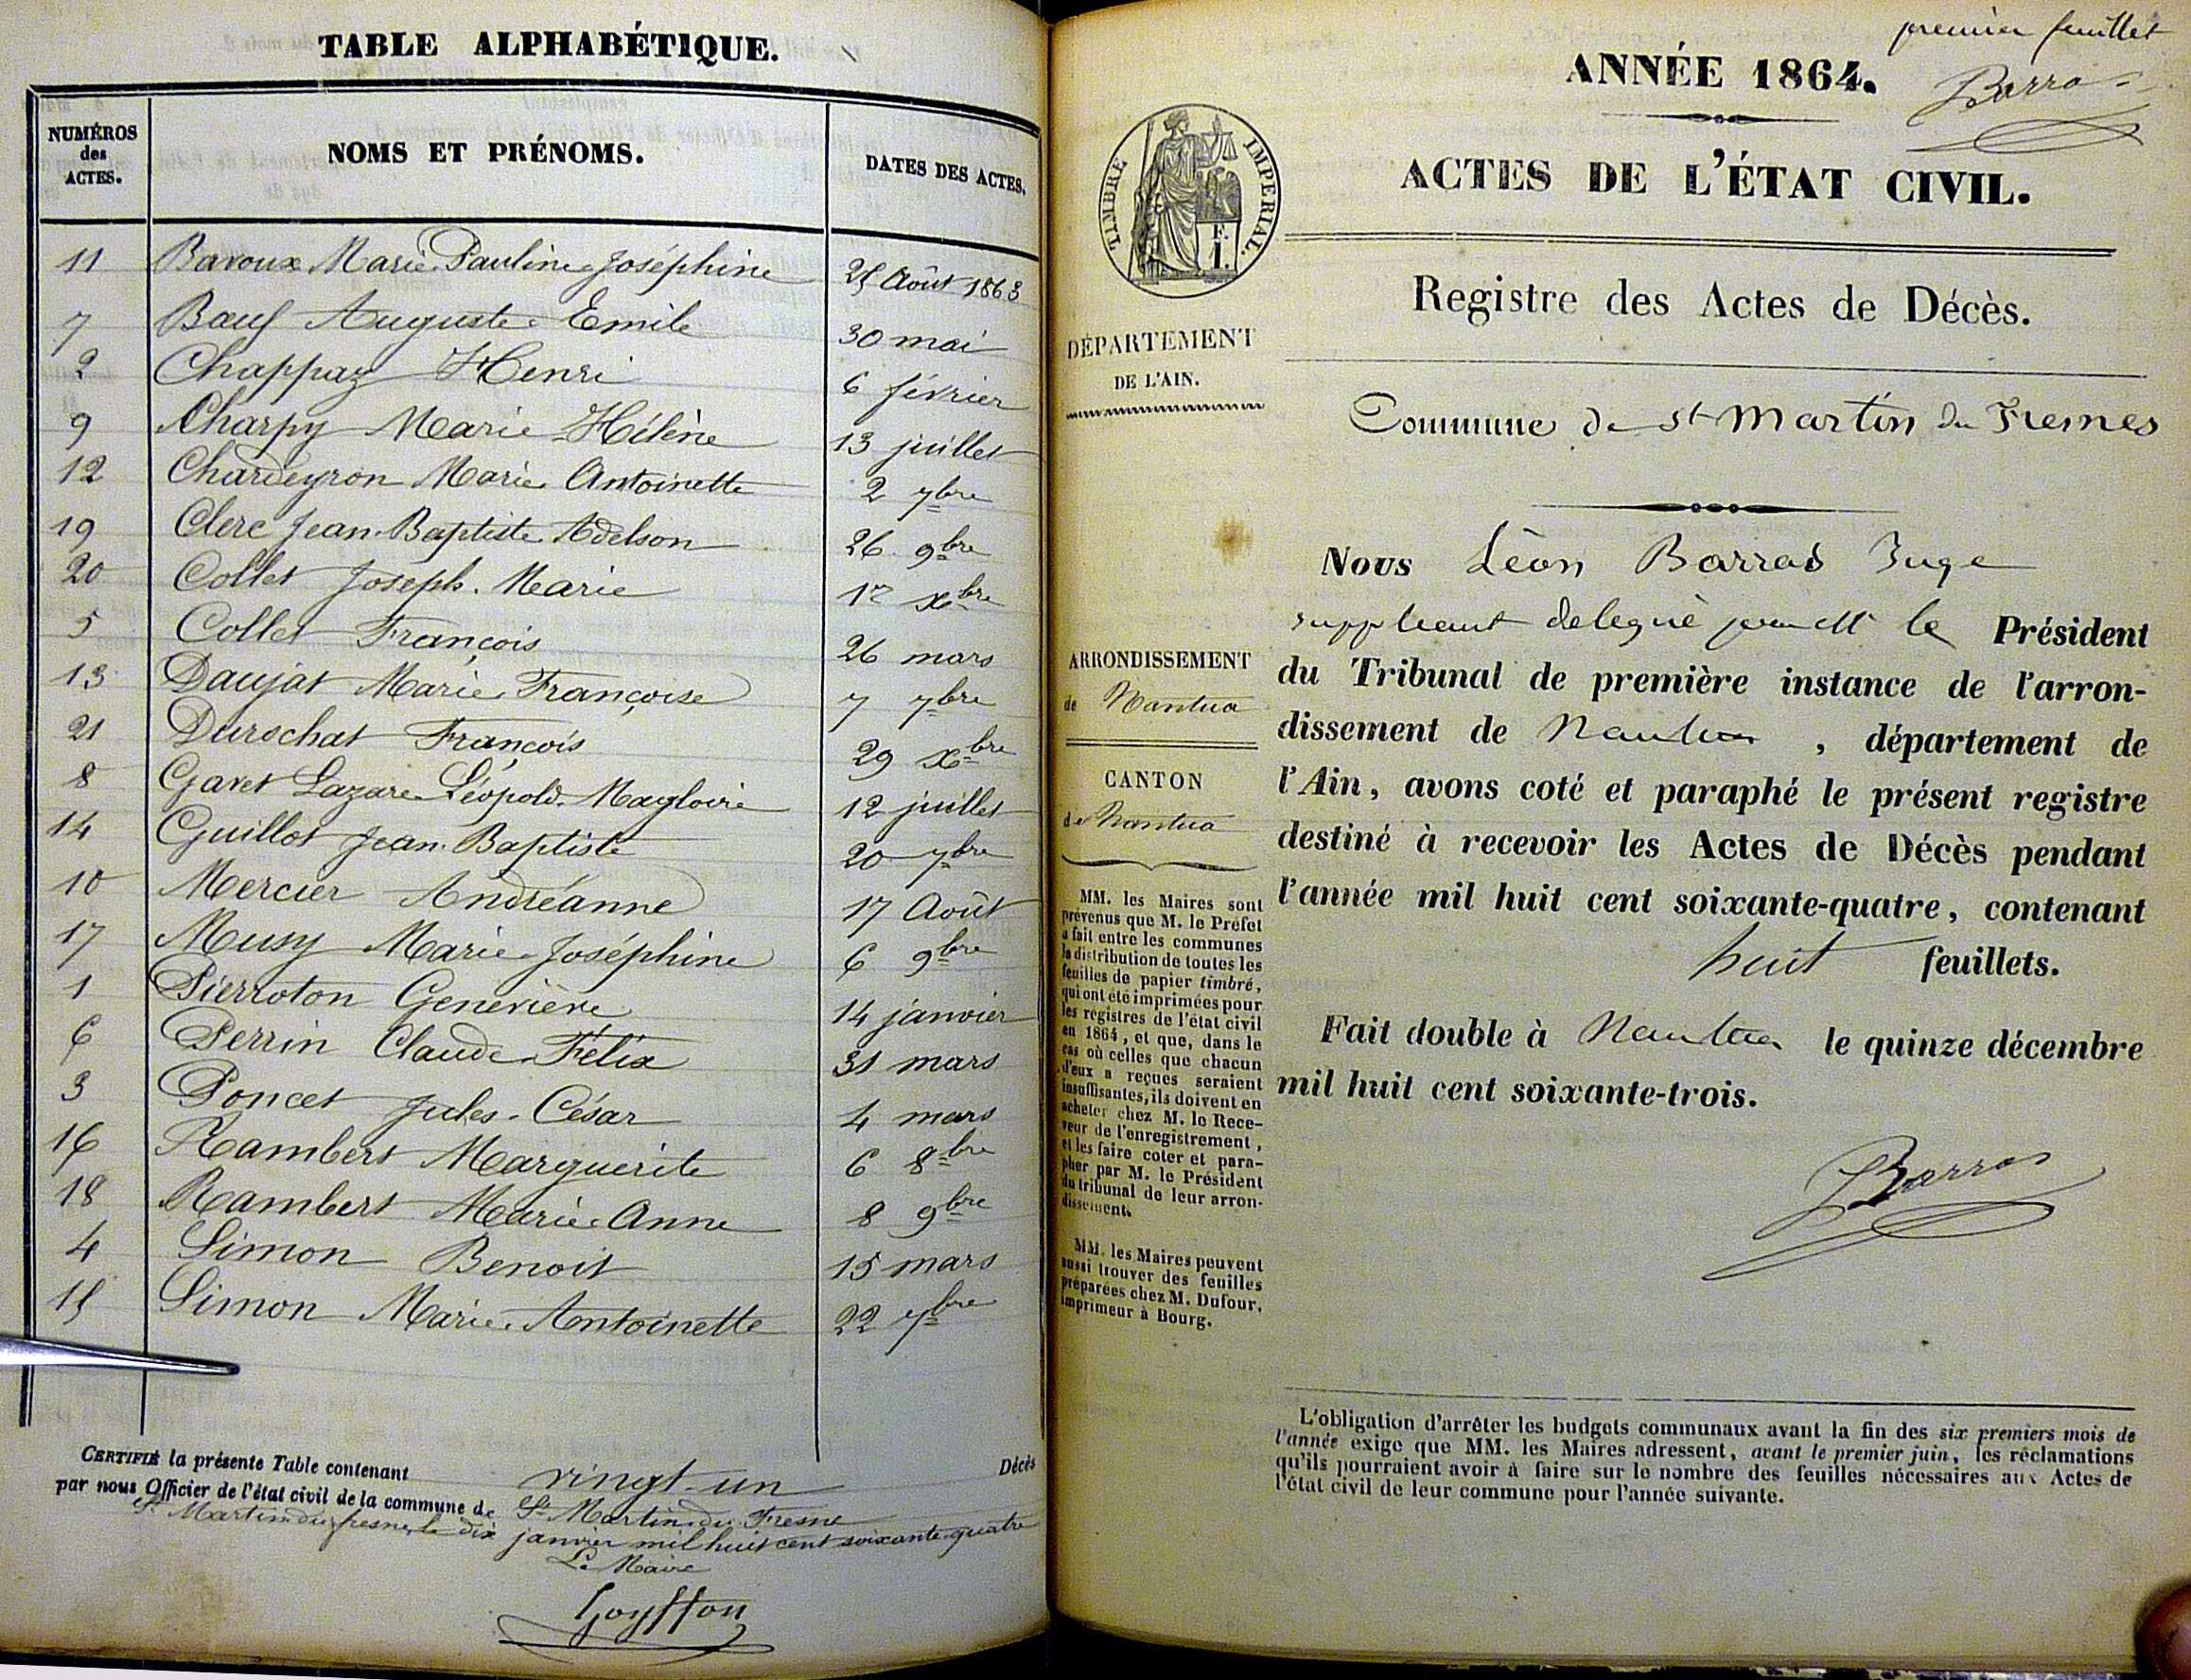 TABLE ALPHABÉTIQUE.
NUMÉROS des ACTES. NOMS ET PRÉNOMS. DATES DES ACTES.
11 Bavoux Marie Pauline Joséphine 25 Août 1863
7 Bœuf Auguste Emile 30 mai
2 Chappaz Henri 6 février
9 Charpy Marie Hélène 13 juillet
12 Chardeyron Marie Antoinette 2 7bre
19 Clerc Jean Baptiste Adelson 26 9bre
20 Collet Joseph Marie 12 Xbre
5 Collet François 26 mars
13 Daujat Marie Françoise 7 7bre
21 Durochat François 29 Xbre
8 Gavet Lazare Léopold Magloire 12 juillet
14 Guillot Jean Baptiste 20 7bre
10 Mercier Andréanne 17 Août
17 Musy Marie Joséphine 6 9bre
1 Pierroton Geneviève 14 janvier
6 Perrin Claude Félix 31 mars
3 Poncet Jules César 4 mars
16 Rambert Marguerite 6 8bre
18 Rambert Marie Anne 8 9bre
4 Simon Benoit 15 mars
15 Simon Marie Antoinette 22 7bre
CERTIFIÉ la présente Table contenant vingt-un Décès
par nous Officier de l'état civil de la commune de St Martin du Fresne
St Martin du fresne, le dix janvier mil huit cent soixante quatre
Le Maire
Goyffon
premier feuillet
Barras
ANNÉE 1864.
ACTES DE L'ÉTAT CIVIL.
TIMBRE IMPÉRIAL.
Registre des Actes de Décès.
DÉPARTEMENT
DE L'AIN.
Commune de st Martin du Fresnes
Nous Léon Barras Juge
suppleant delegué par Mr le Président
du Tribunal de première instance de l'arron-
dissement de Nantua, département de
l'Ain, avons coté et paraphé le présent registre
destiné à recevoir les Actes de Décès pendant
l'année mil huit cent soixante-quatre, contenant
huit feuillets.
Fait double à Nantua le quinze décembre
mil huit cent soixante-trois.
Barras
ARRONDISSEMENT
de Nantua
CANTON
de Nantua
MM. les Maires sont
prévenus que M. le Préfet
a fait entre les communes
la distribution de toutes les
feuilles de papier timbré,
qui ont été imprimées pour
les registres de l'état civil
en 1864, et que, dans le
cas où celles que chacun
d'eux a reçues seraient
insuffisantes, ils doivent en
acheter chez M. le Rece-
veur de l'enregistrement,
et les faire coter et para-
pher par M. le Président
du tribunal de leur arron-
dissement.
MM. les Maires peuvent
aussi trouver des feuilles
préparées chez M. Dufour,
imprimeur à Bourg.
L'obligation d'arrêter les budgets communaux avant la fin des six premiers mois de
l'année exige que MM. les Maires adressent, avant le premier juin, les réclamations
qu'ils pourraient avoir à faire sur le nombre des feuilles nécessaires aux Actes de
l'état civil de leur commune pour l'année suivante.